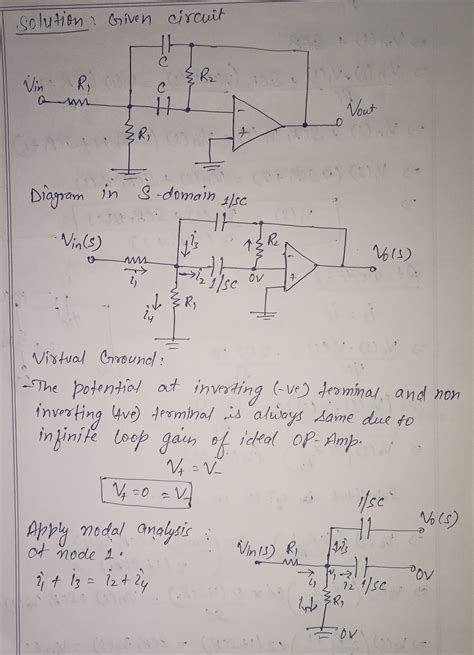 Solution: Given circuit
C
Vin R1
C
R2
R1
-
+
Vout
Diagram in S-domain 1/SC
Vin(s)
i3
R2
V0(s)
i1
i2 1/SC
0V
-
+
i4 R1
Virtual Ground:
-The potential at inverting (-ve) terminal, and non
inverting (+ve) terminal is always same due to
infinite loop gain of ideal OP-Amp.
V+ = V-
V+ = 0 = V-
Apply nodal analysis :
at node 1.
i1 + i3 = i2 + i4
1/SC
V0(s)
Vin(s) R1
i3
i1 V1 i2 1/SC
0V
i4 R1
0V